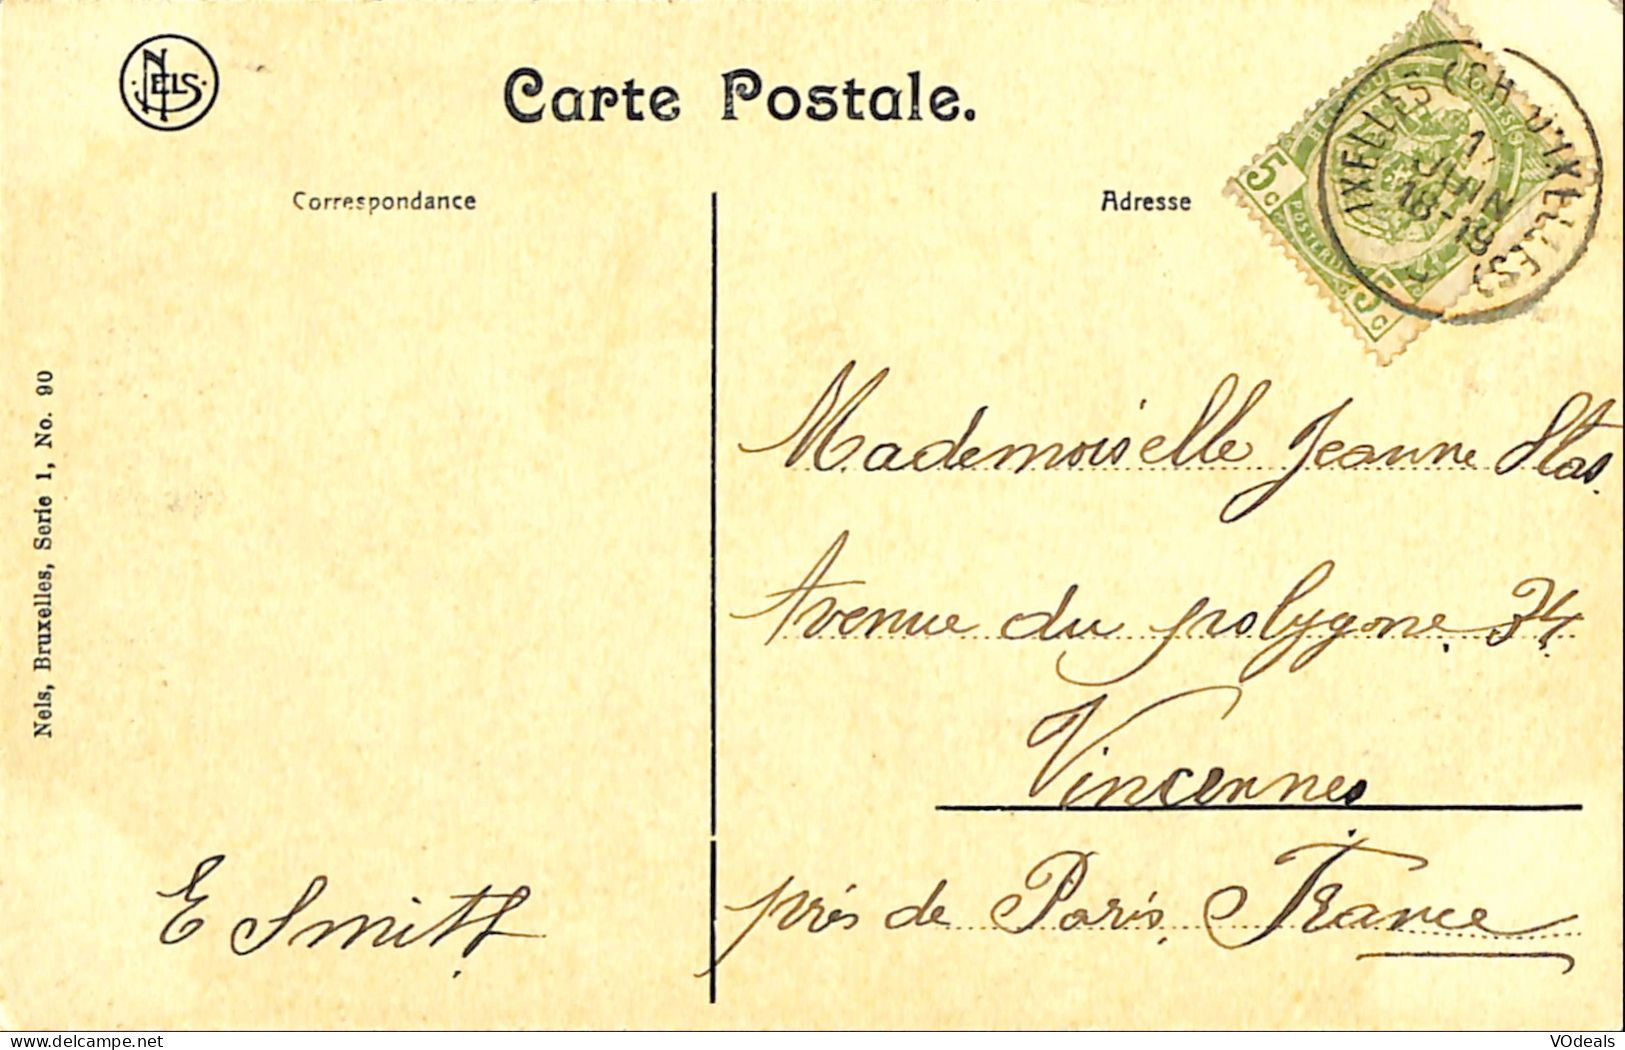 NELS
Carte Postale.
Correspondance
Adresse
BELGIQUE
5c
POSTERIJEN
5c
IXELLES (CH. D'IXELLES)
JUIN
18-19
Nels, Bruxelles, Serie 1, No. 90
Mademoiselle Jeanne Stas.
Avenue du polygone 34
Vincennes
près de Paris, France
E Smith
VOdeals